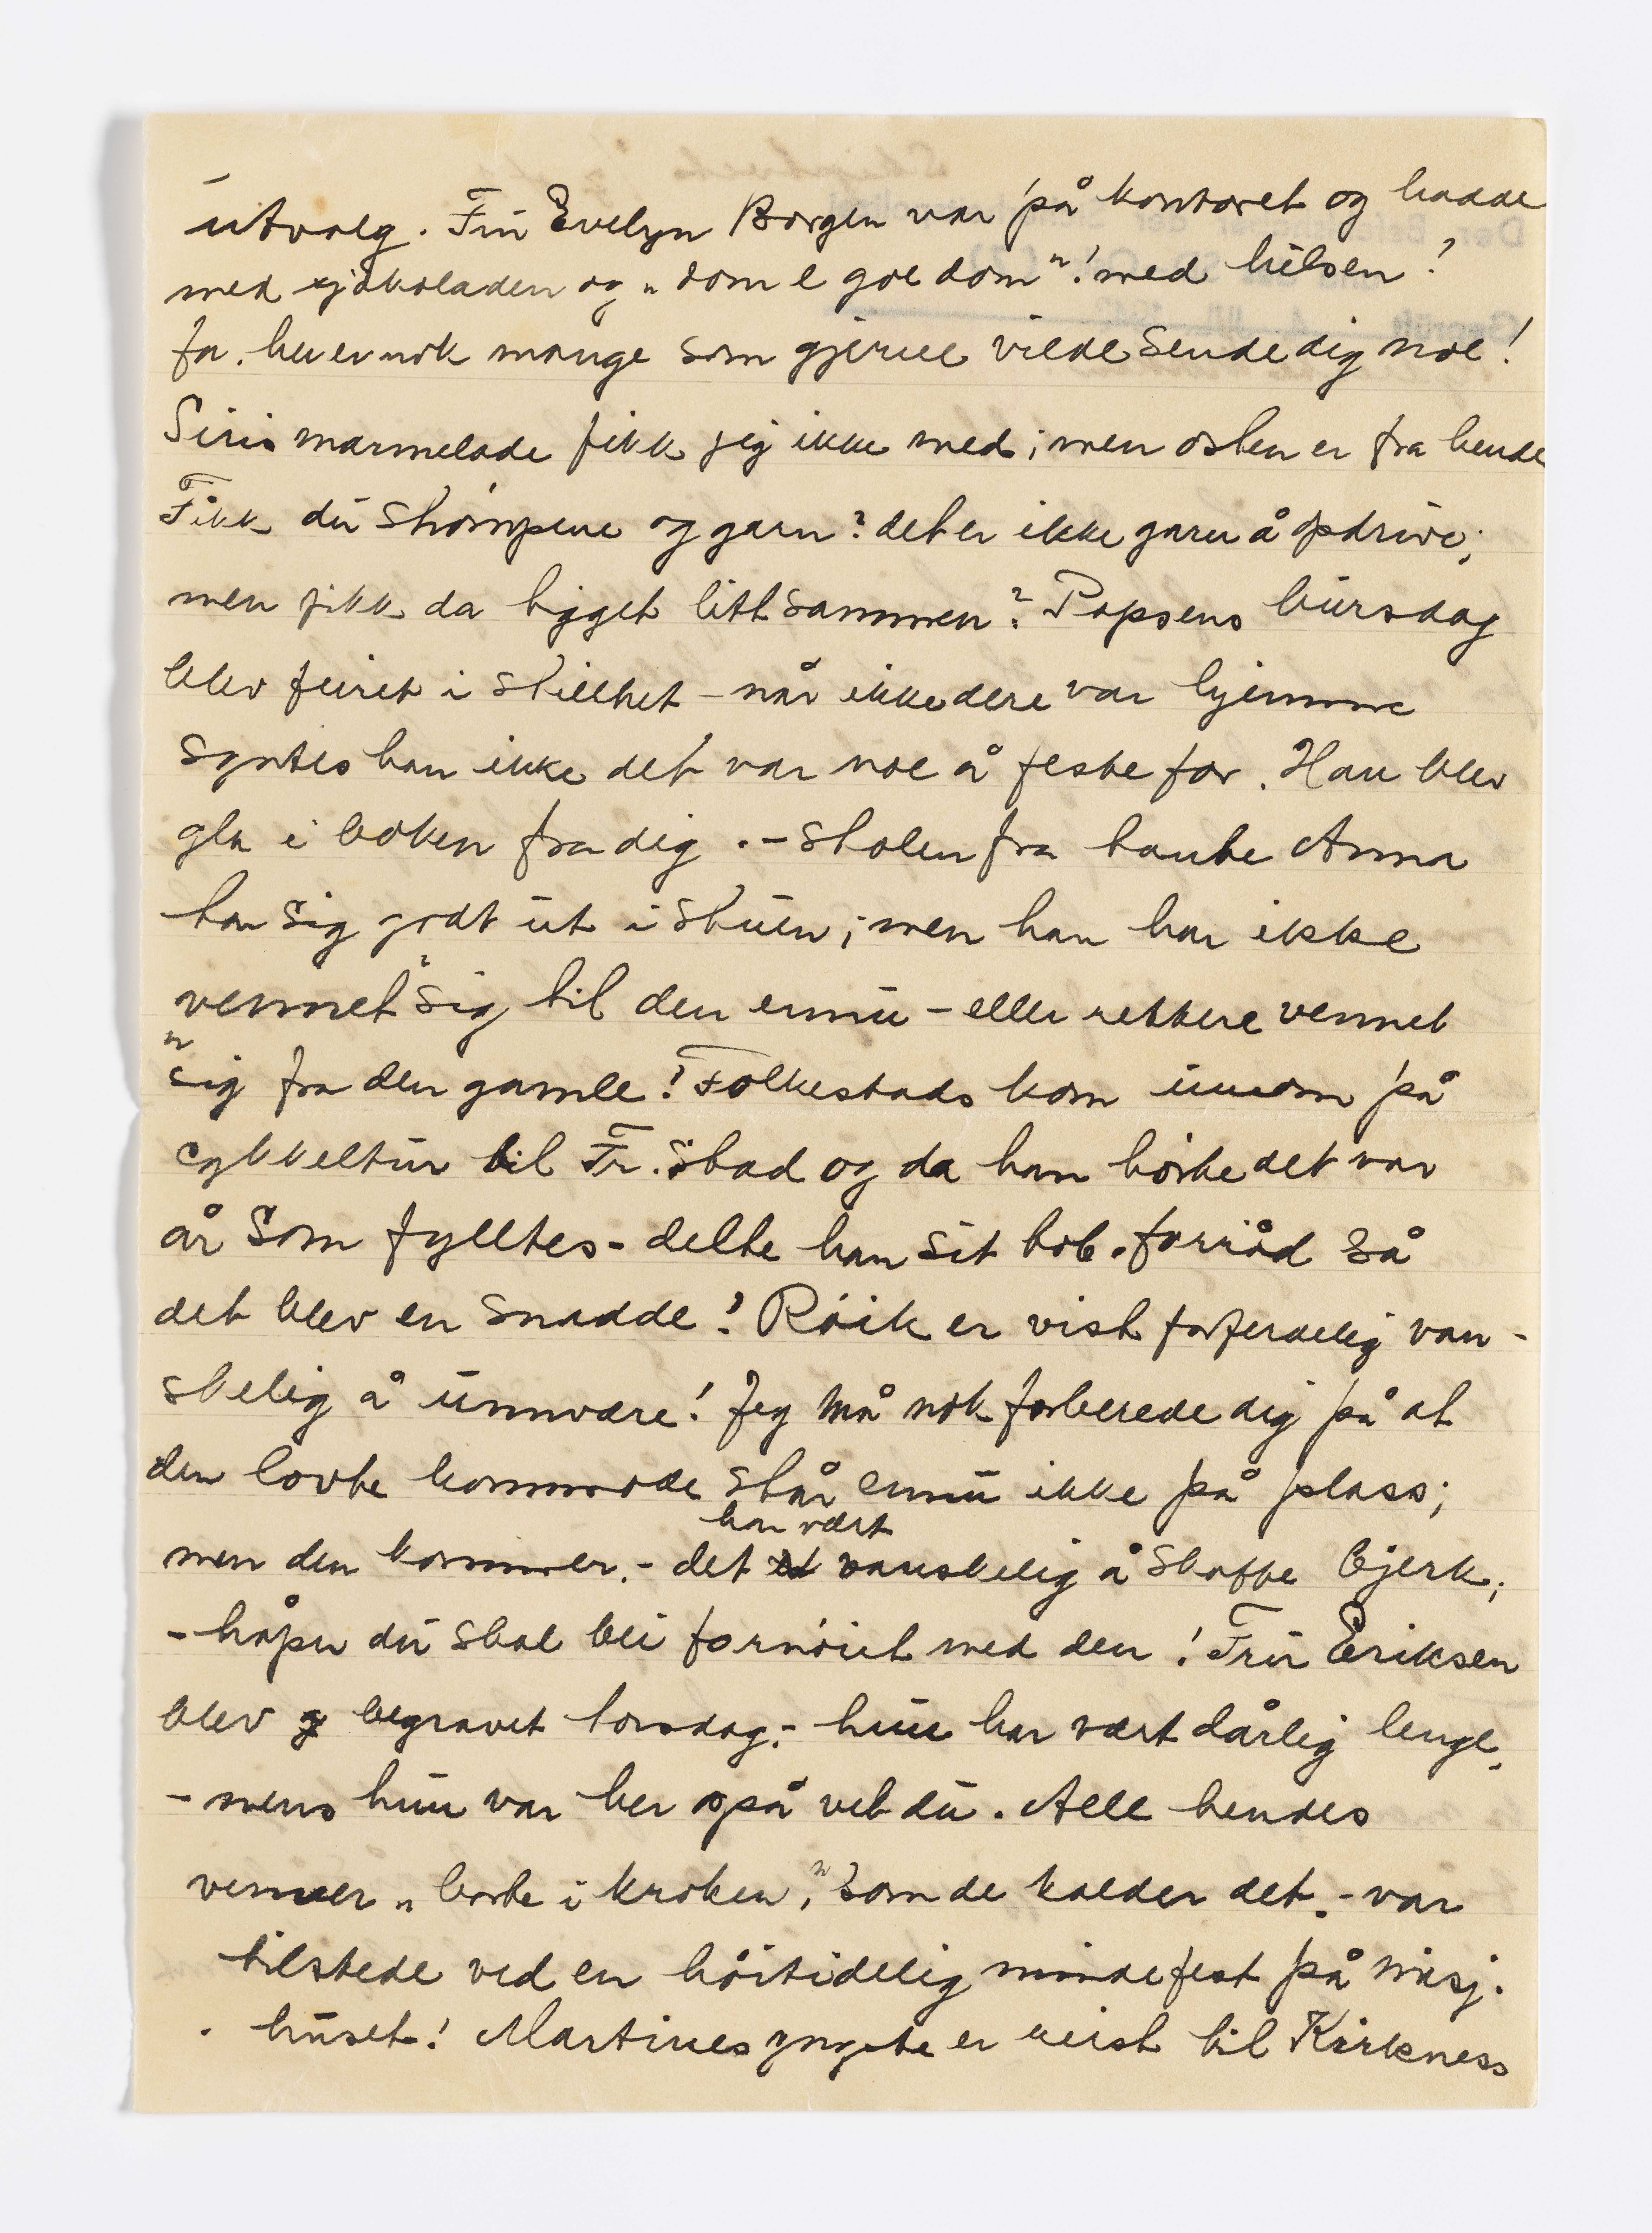 utvalg. Fru Evelyn Borgen var på kontoret og hadde
med sjokoladen og „dom e goe dom"! med hilsen!
Ja. her er nok mange som gjerne vilde sende dig noe!
Siris marmelade fikk jeg ikke med; men osten er fra hende
Fikk du strømpene og garn? det er ikke garn å opdrive;
men fikk da tigget litt sammen? Papsens bursdag
blev feiret i stillhet – når ikke dere var hjemme
syntes han ikke det var noe å feste for. Han blev
gla i boken fra dig. – Stolen fra tante Anna
tar sig godt ut i stuen; men han har ikke
vennet sig til den ennu – eller rettere vennet
sig fra den gamle! Folkestads kom innom på
cykkeltur til Fr.stad og da han hørte det var
år som fylltes – delte han sit tob.forråd så
det blev en snadde! Røik er vist forferdelig van-
skelig å unnvære! Jeg må nok forberede dig på at
den lovte kommode står ennu ikke på plass;
men den kommer. – det har vært vanskelig å skaffe bjerk;
– håper du skal bli fornøiet med den! Fru Eriksen
blev begravet torsdag; – hun har vært dårlig lenge,
– mens hun var her også vet du. Alle hendes
venner „borte i kroken", som de kaldes det. – var
tilstede ved en høitidelig mindefest på misj.
huset! Martines yngste er reist til Kirkness